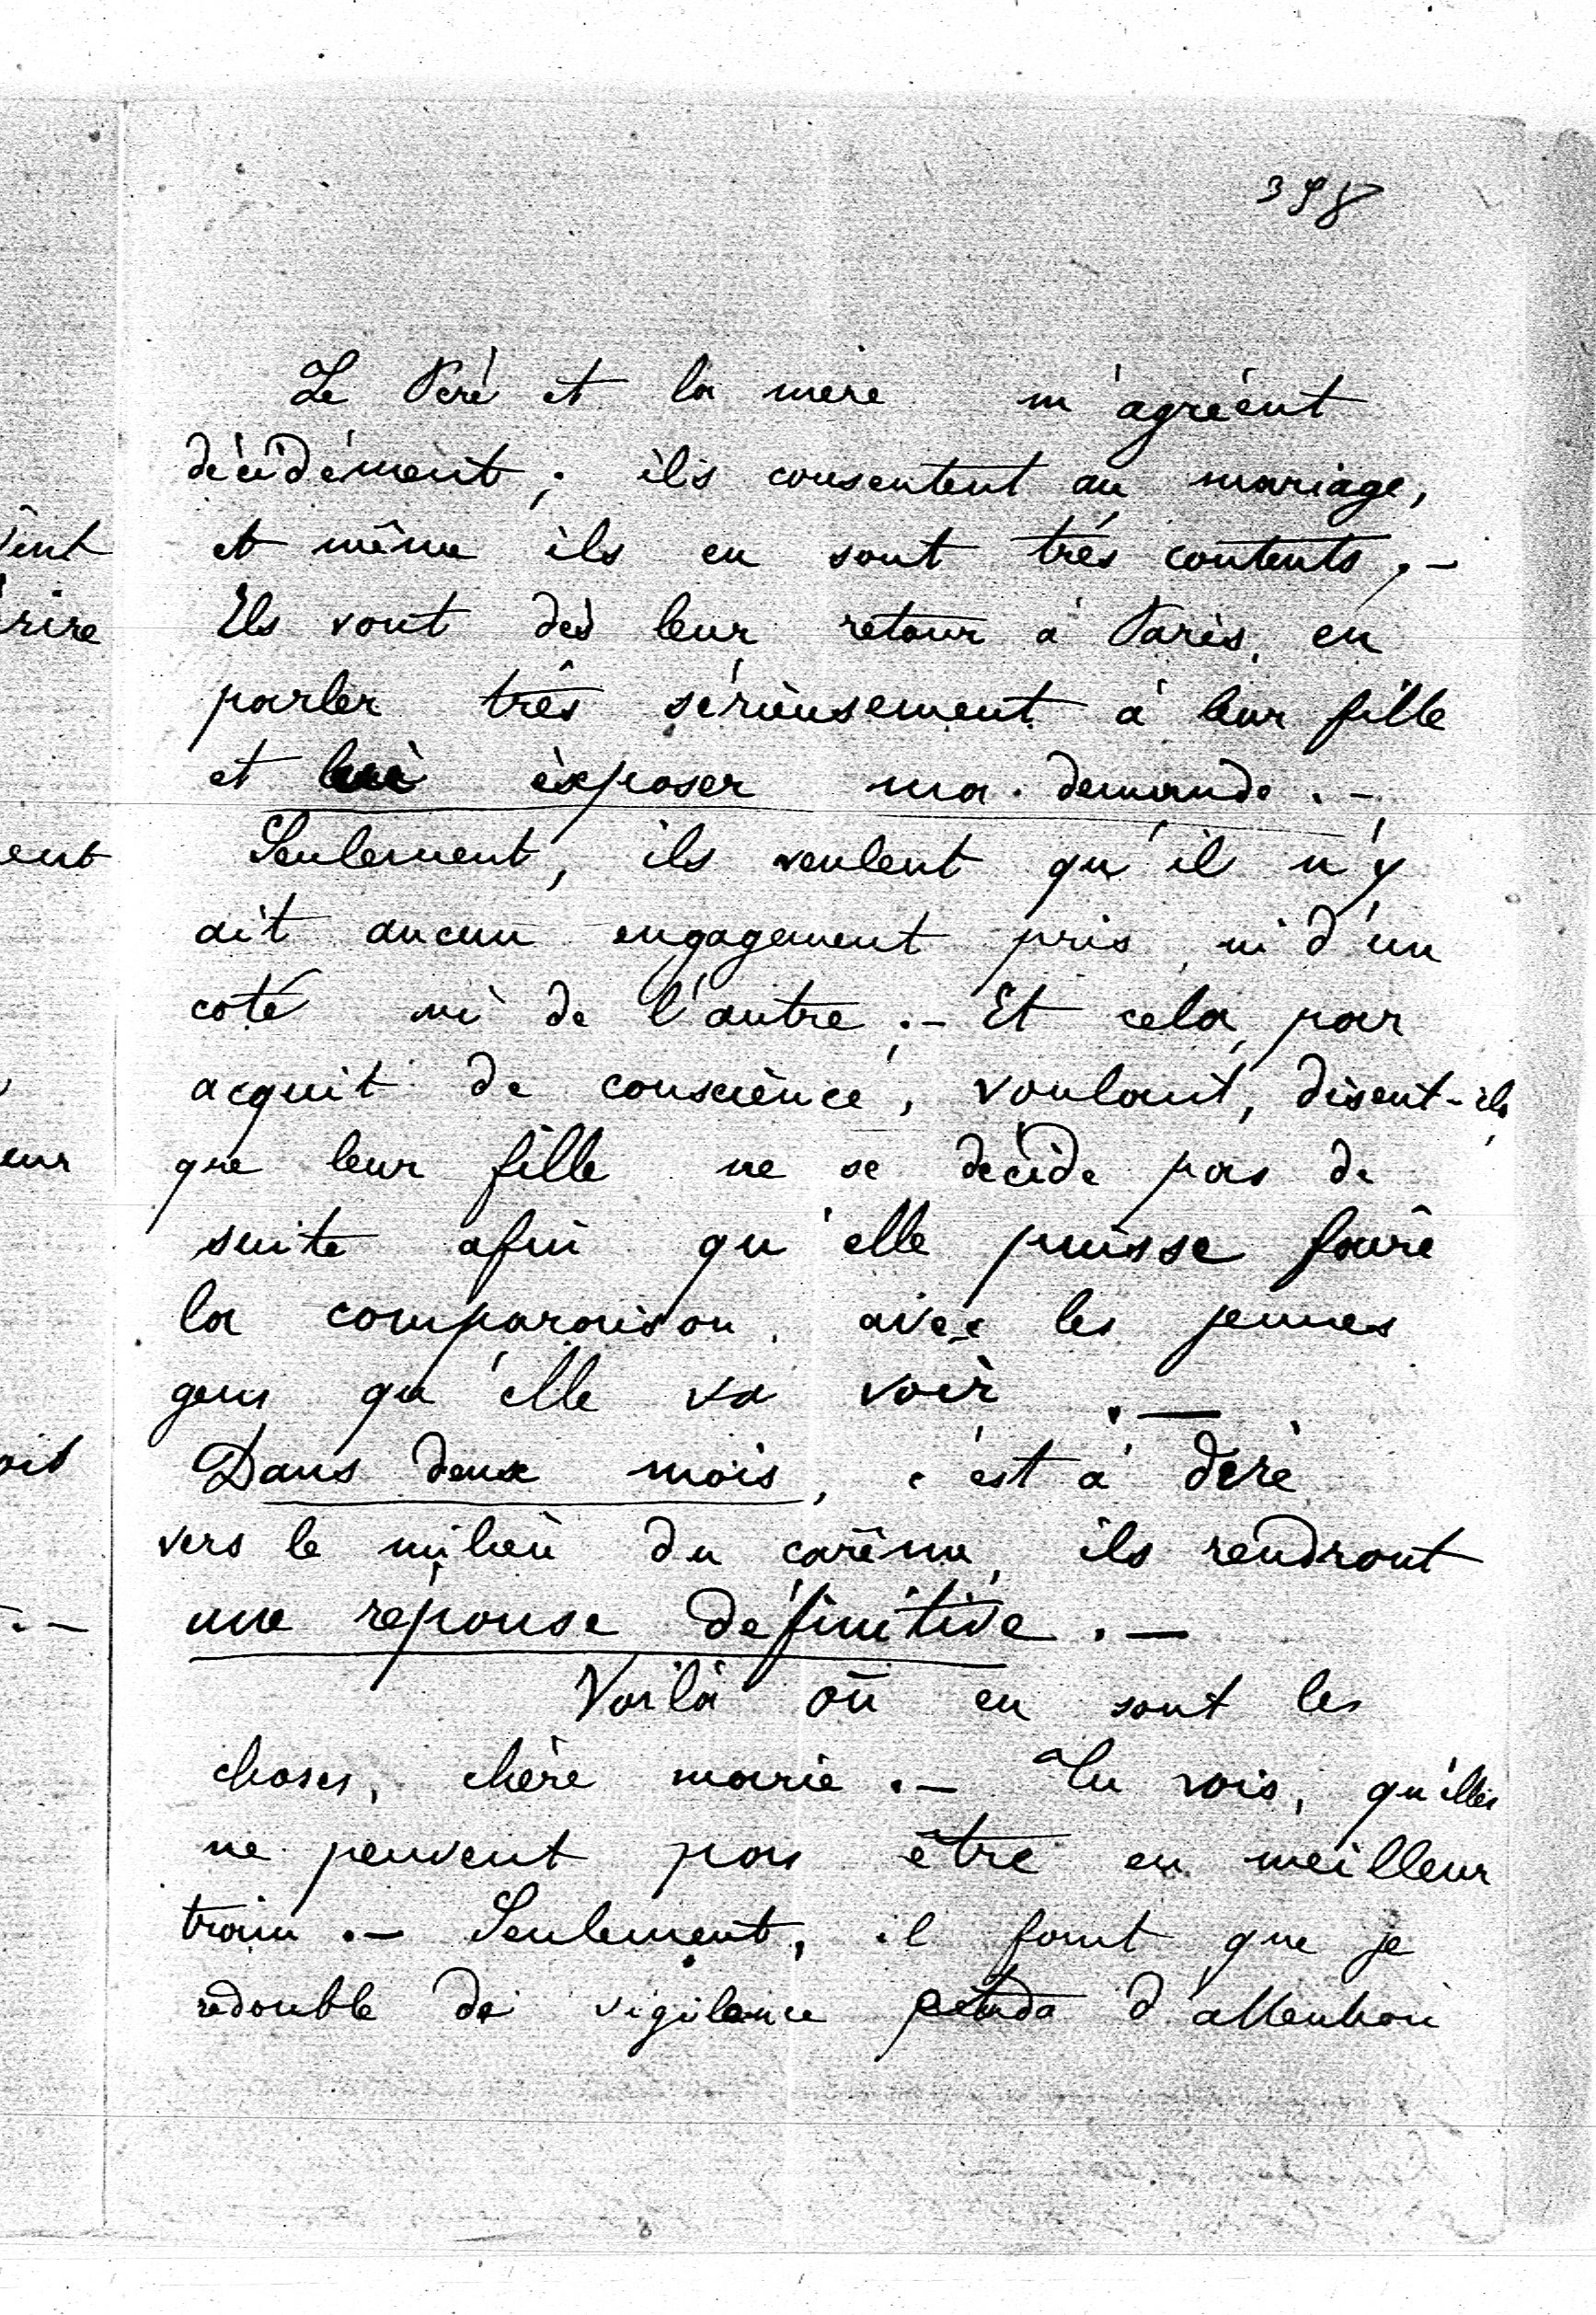 398
Le Père et la mère m'agréent
décidément ; ils consentent au mariage,
et même ils en sont très contents .-
Ils vont dès leur retour à Paris, en
parler très sérieusement à leur fille
et lui exposer ma demande .-
Seulement, ils veulent qu'il n'y
ait aucun engagement pris, ni d'un
coté ni de l'autre .- Et cela, par
acquit de conscience, voulant, disent-ils,
que leur fille ne se décide pas de
suite afin qu'elle puisse faire
la comparaison avec les jeunes
gens qu'elle va voir .-
Dans deux mois, c'est à dire
vers le milieu du carême, ils rendront
une réponse définitive .-
Voilà où en sont les
choses, chère marie .- Tu vois, qu'elles
ne peuvent pas être en meilleur
train .- Seulement, il faut que je
redouble de vigilance d'attention